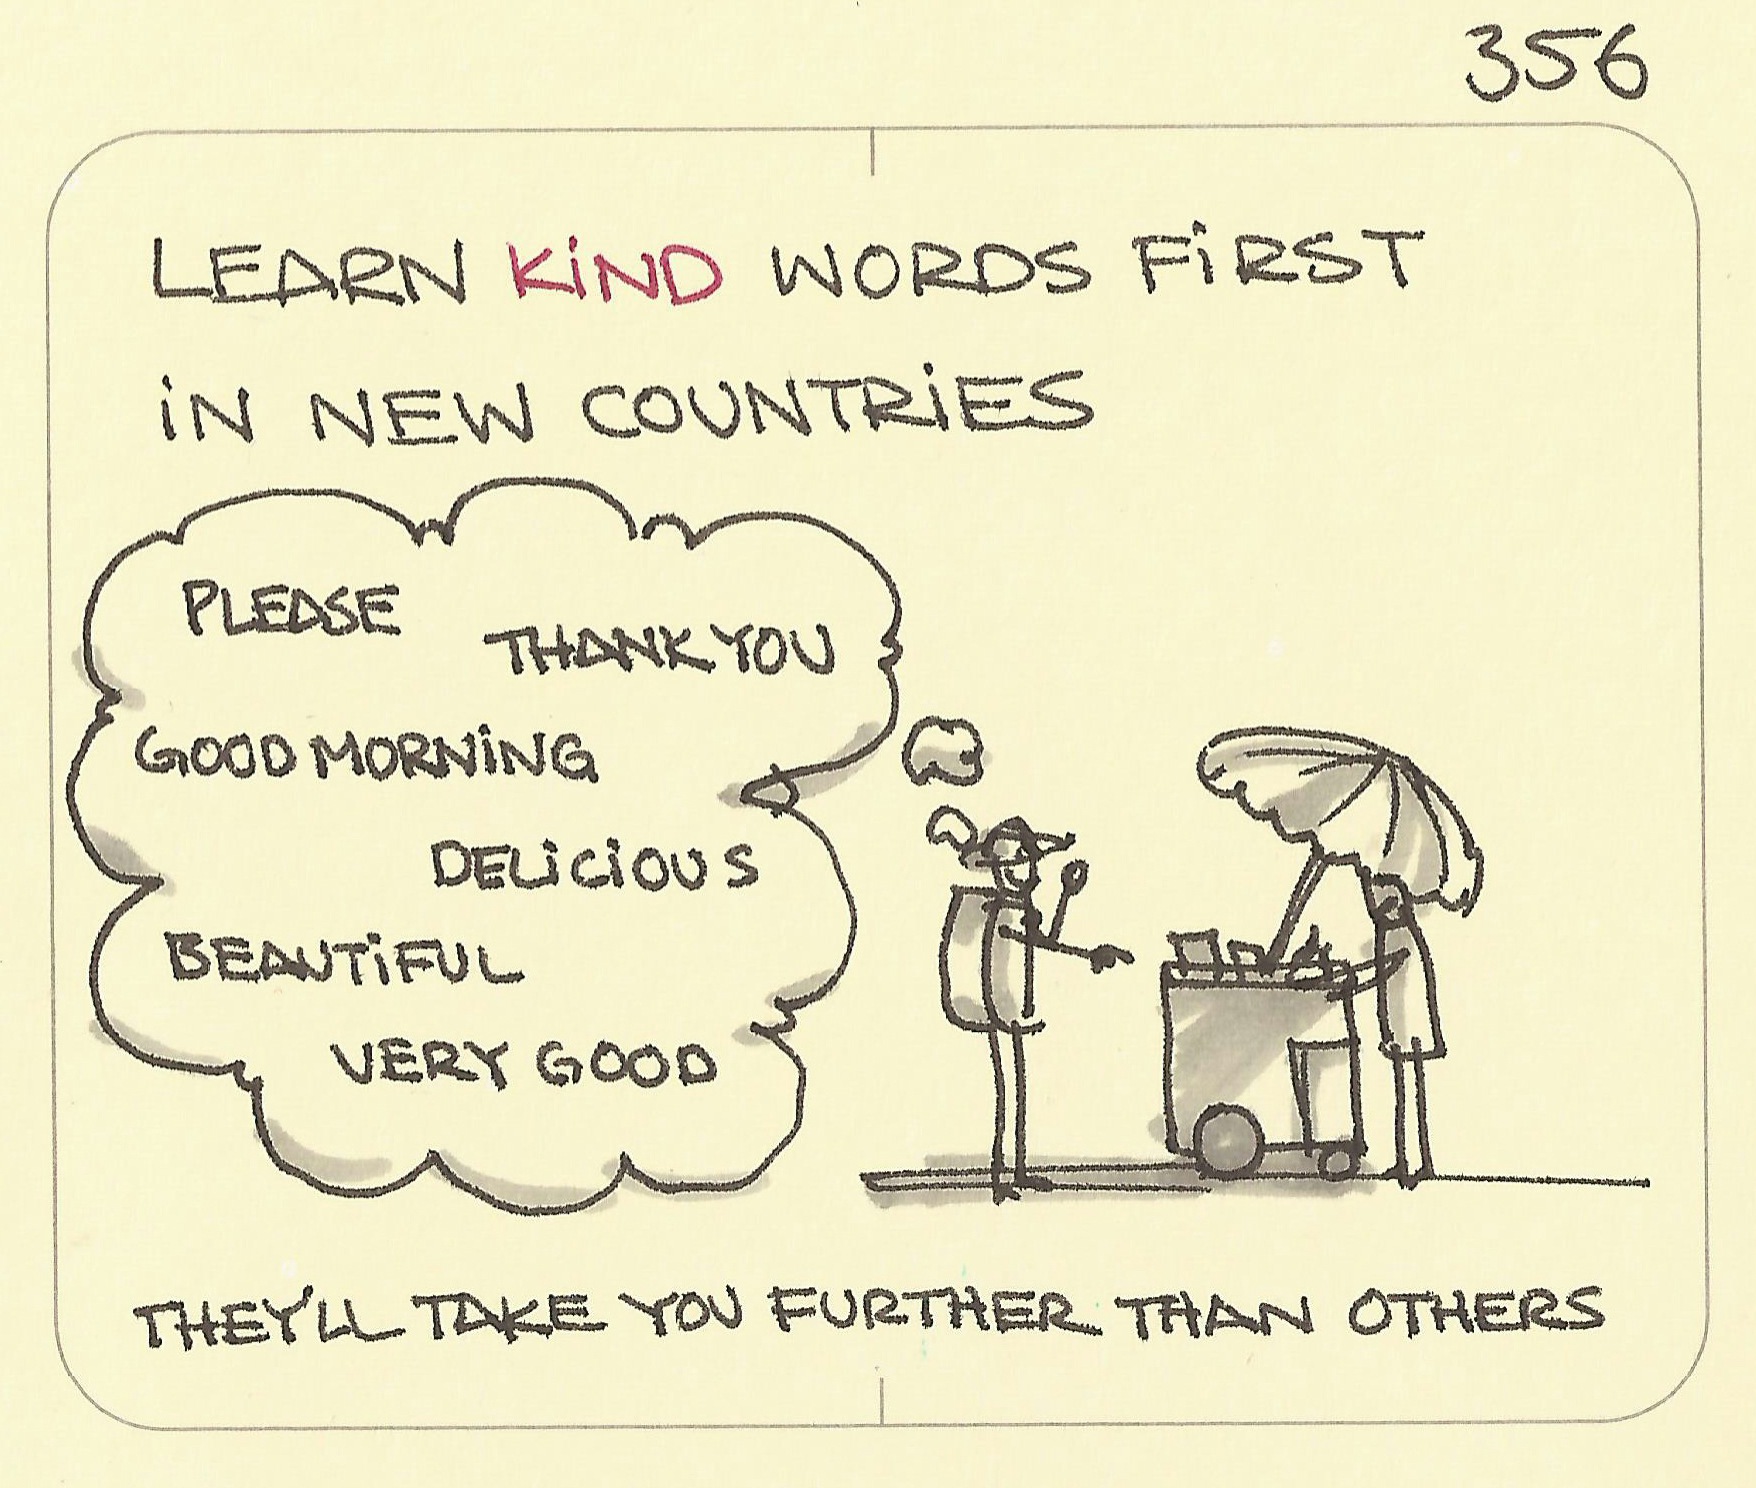 356
LEARN KiND WORDS FiRST
iN NEW COUNTRiES
PLEASE
THANK YOU
GOOD MORNiNG
DELiCiOUS
BEAUTiFUL
VERY GOOD
THEY'LL TAKE YOU FURTHER THAN OTHERS